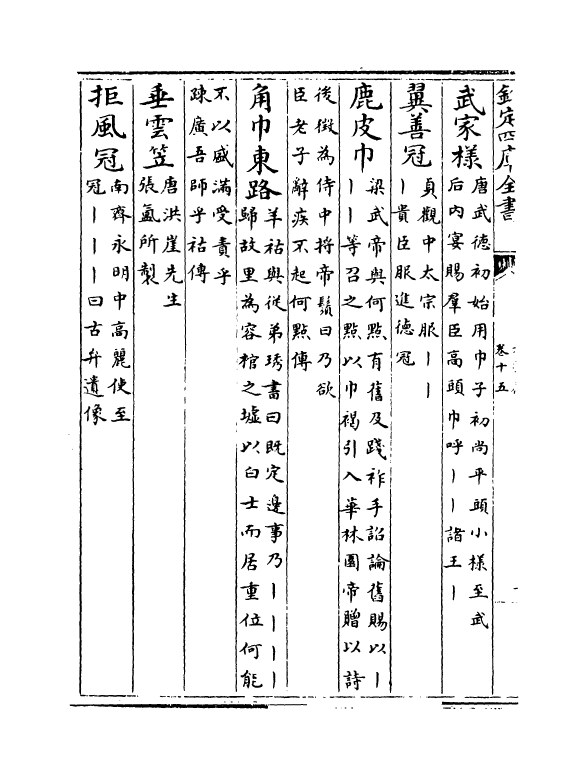 欽定四庫全書
卷十五
武家樣
唐武德初始用巾子初尚平頭小樣至武
后內宴賜羣臣高頭巾呼丨丨諸王丨
翼善冠
貞觀中太宗服丨丨
丨貴臣服進德冠
鹿皮巾
梁武帝與何㸃有舊及踐祚手詔論舊賜以丨
丨丨等召之㸃以巾褐引入華林園帝贈以詩
後徵為侍中捋帝鬚曰乃欲
臣老子辭疾不起何㸃傳
角巾東路
羊祜與從弟琇書曰既定邊事乃丨丨丨丨
歸故里為容棺之墟以白士而居重位何能
不以盛滿受責乎
疎廣吾師乎祜傳
垂雲笠
唐洪崖先生
張氲所製
拒風冠
南齊永明中高麗使至
冠丨丨丨曰古弁遺像